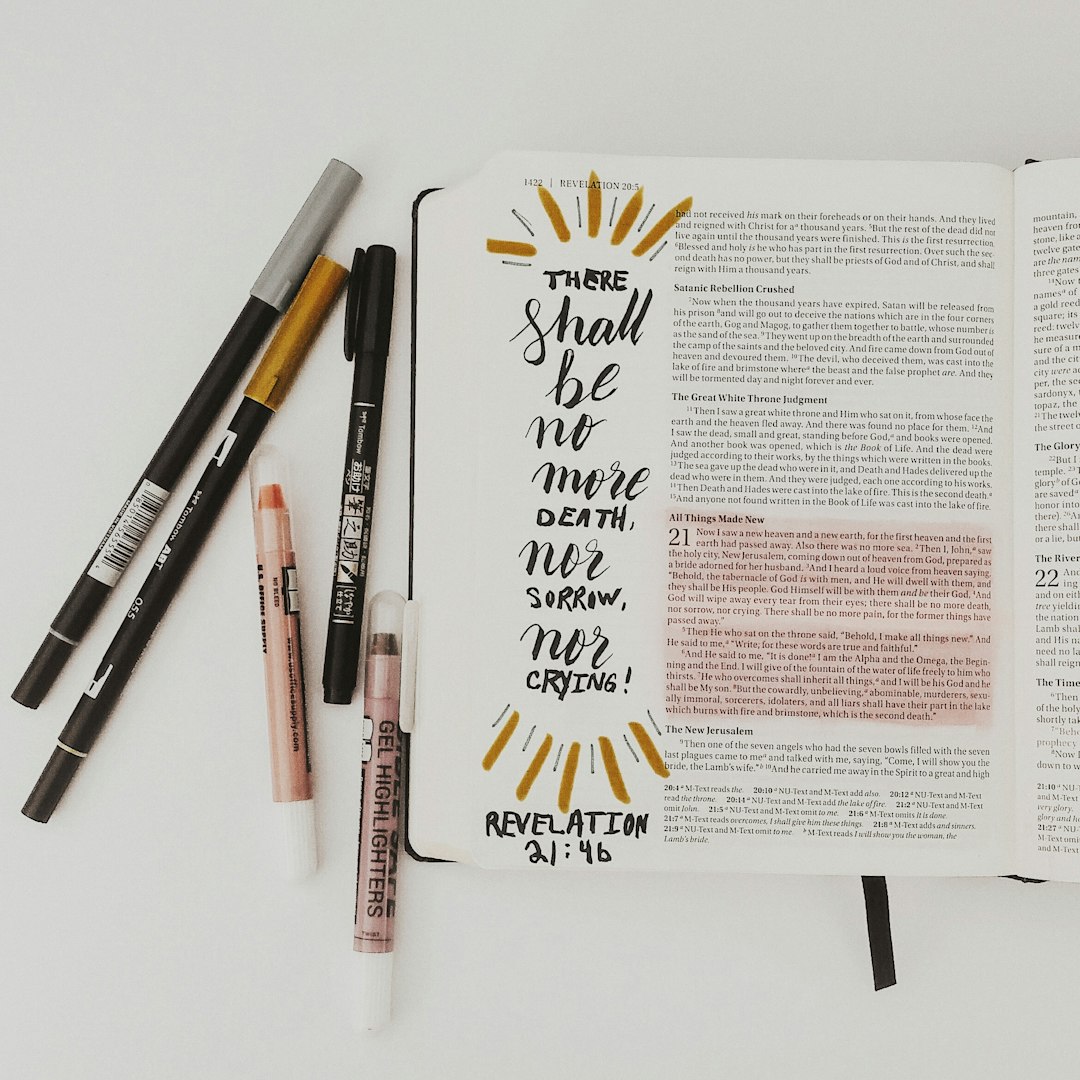 1422 | REVELATION 20:5
THERE
shall
be
no
more
DEATH,
nor
SORROW,
nor
CRYING!
REVELATION
21:4b
had not received his mark on their foreheads or on their hands. And they lived
and reigned with Christ for a thousand years. 5But the rest of the dead did not
live again until the thousand years were finished. This is the first resurrection.
6Blessed and holy is he who has part in the first resurrection. Over such the sec-
ond death has no power, but they shall be priests of God and of Christ, and shall
reign with Him a thousand years.
Satanic Rebellion Crushed
7Now when the thousand years have expired, Satan will be released from
his prison 8and will go out to deceive the nations which are in the four corners
of the earth, Gog and Magog, to gather them together to battle, whose number is
as the sand of the sea. 9They went up on the breadth of the earth and surrounded
the camp of the saints and the beloved city. And fire came down from God out of
heaven and devoured them. 10The devil, who deceived them, was cast into the
lake of fire and brimstone where the beast and the false prophet are. And they
will be tormented day and night forever and ever.
The Great White Throne Judgment
11Then I saw a great white throne and Him who sat on it, from whose face the
earth and the heaven fled away. And there was found no place for them. 12And
I saw the dead, small and great, standing before God, and books were opened.
And another book was opened, which is the Book of Life. And the dead were
judged according to their works, by the things which were written in the books.
13The sea gave up the dead who were in it, and Death and Hades delivered up the
dead who were in them. And they were judged, each one according to his works.
14Then Death and Hades were cast into the lake of fire. This is the second death.
15And anyone not found written in the Book of Life was cast into the lake of fire.
All Things Made New
21 Now I saw a new heaven and a new earth, for the first heaven and the first
earth had passed away. Also there was no more sea. 2Then I, John, saw
the holy city, New Jerusalem, coming down out of heaven from God, prepared as
a bride adorned for her husband. 3And I heard a loud voice from heaven saying,
"Behold, the tabernacle of God is with men, and He will dwell with them, and
they shall be His people. God Himself will be with them and be their God. 4And
God will wipe away every tear from their eyes; there shall be no more death,
nor sorrow, nor crying. There shall be no more pain, for the former things have
passed away."
5Then He who sat on the throne said, "Behold, I make all things new." And
He said to me, "Write, for these words are true and faithful."
6And He said to me, "It is done! I am the Alpha and the Omega, the Begin-
ning and the End. I will give of the fountain of the water of life freely to him who
thirsts. 7He who overcomes shall inherit all things, and I will be his God and he
shall be My son. 8But the cowardly, unbelieving, abominable, murderers, sexu-
ally immoral, sorcerers, idolaters, and all liars shall have their part in the lake
which burns with fire and brimstone, which is the second death."
The New Jerusalem
9Then one of the seven angels who had the seven bowls filled with the seven
last plagues came to me and talked with me, saying, "Come, I will show you the
bride, the Lamb's wife." 10And he carried me away in the Spirit to a great and high
20:4 a M-Text reads the. 20:10 a NU-Text and M-Text add also. 20:12 a NU-Text and M-Text
read the throne. 20:14 a NU-Text and M-Text add the lake of fire. 21:2 a NU-Text and M-Text
omit John. 21:5 a NU-Text and M-Text omit to me. 21:6 a M-Text omits It is done.
21:7 a M-Text reads overcomes, I shall give him these things. 21:8 a M-Text adds and sinners.
21:9 a NU-Text and M-Text omit to me. b M-Text reads I will show you the woman, the
Lamb's bride.
mountain,
heaven from
stone, like a
twelve gates
are the name
three gates
names
a gold reed
square; its
reed: twelve
he measure
sure of a m
and the cit
city were
per, the se
sardonyx,
topaz, the
21The twel
the street o
The Glory
temple.
glory of G
are saved
honor into
there).
or a lie, but
The River
22 And
and on eith
tree yieldin
the nation
Lamb shal
and His na
need no la
shall reign
The Time
shortly tak
prophecy
down to w
Tombow
ABT
055
Tombow
NO BLEED
U.S. OFFICE SUPPLY
www.usofficesupply.com
GEL HIGHLIGHTERS
TWIST